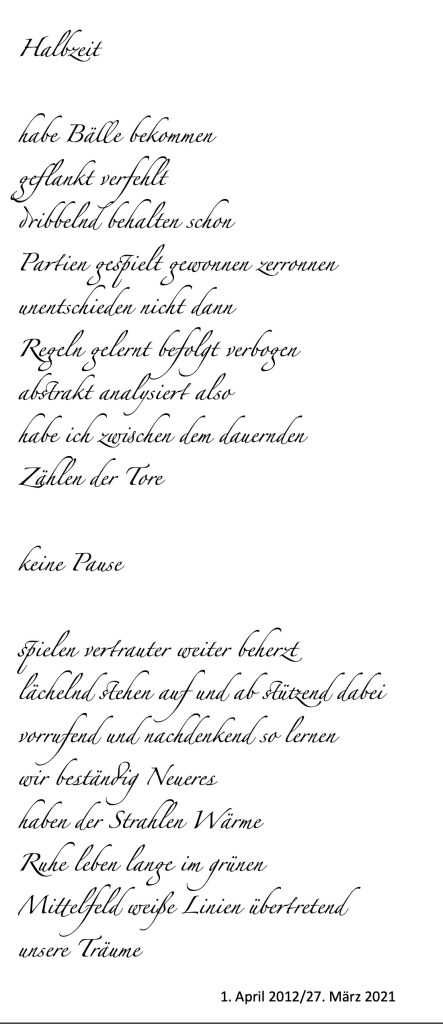 Halbzeit
habe Bälle bekommen
geflankt verfehlt
dribbelnd behalten schon
Partien gespielt gewonnen zerronnen
unentschieden nicht dann
Regeln gelernt befolgt verbogen
abstrakt analysiert also
habe ich zwischen dem dauernden
Zählen der Tore
keine Pause
spielen vertrauter weiter beherzt
lächelnd stehen auf und ab stützend dabei
vorrufend und nachdenkend so lernen
wir beständig Neueres
haben der Strahlen Wärme
Ruhe leben lange im grünen
Mittelfeld weiße Linien übertretend
unsere Träume
1. April 2012/27. März 2021